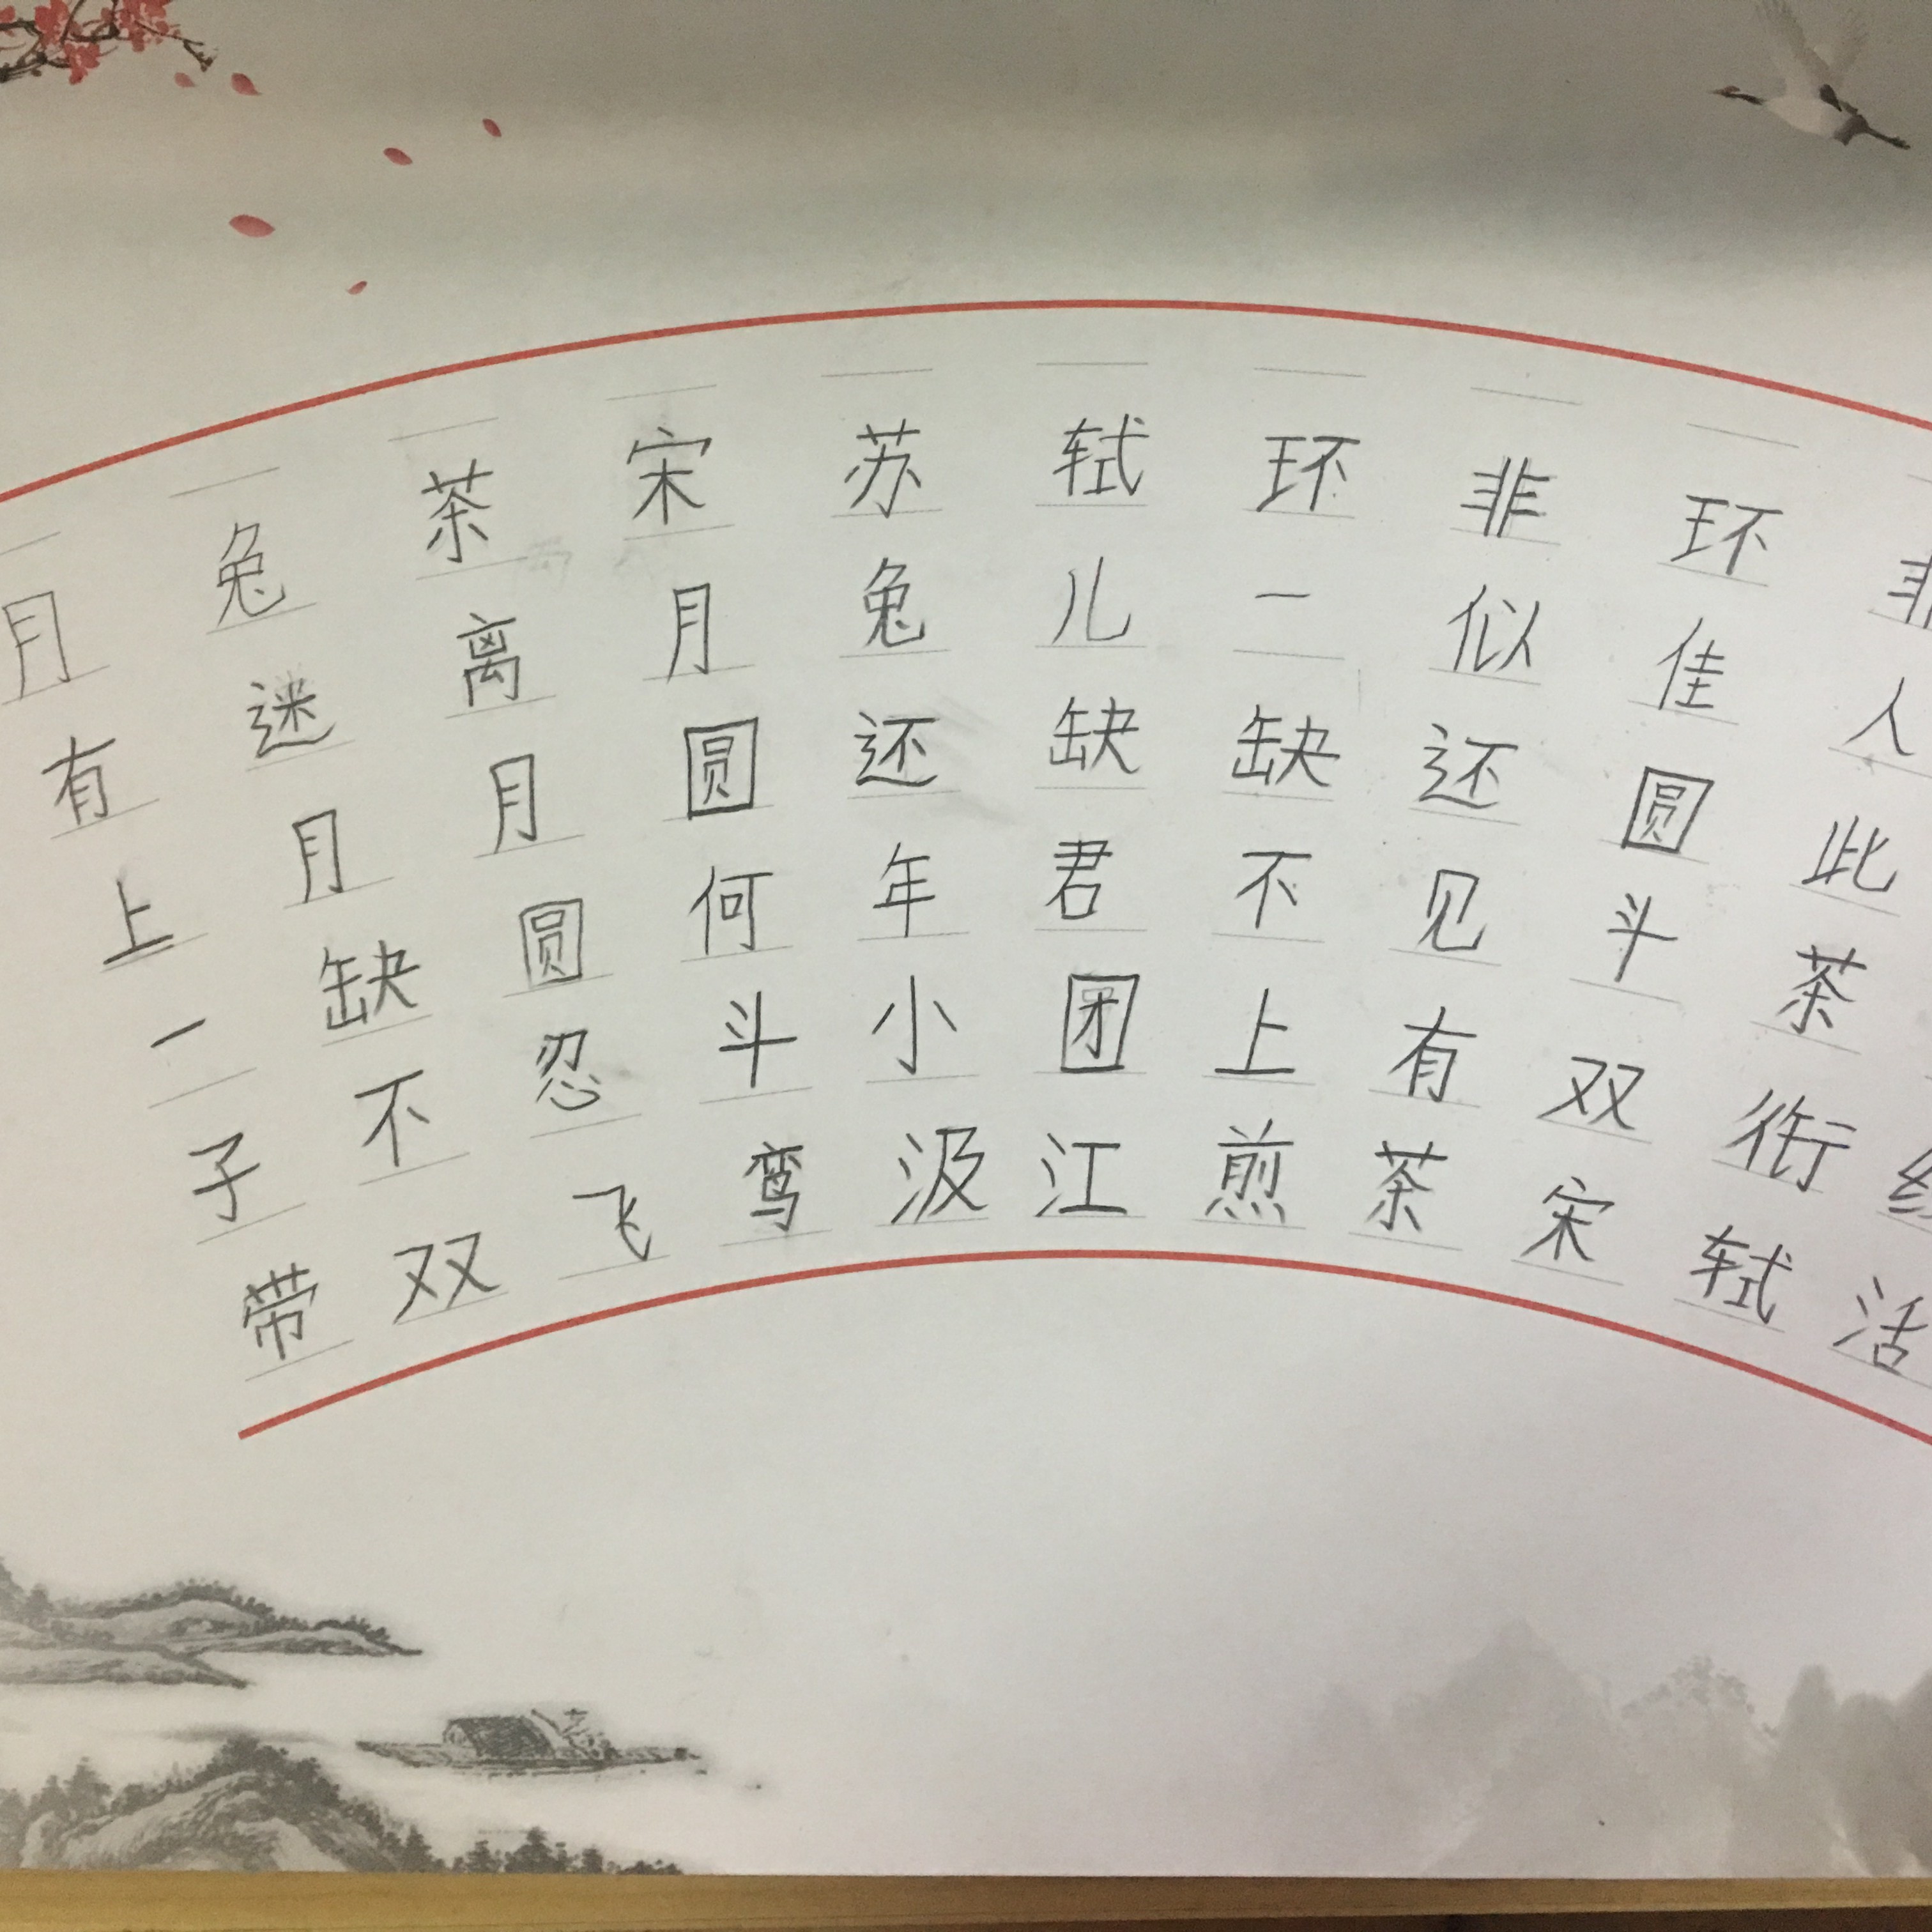 月兔茶宋苏轼环非环非
有迷离月兔儿一似佳人
上月月圆还缺缺还圆此
一缺圆何年君不见斗茶
子不忍斗小团上有双衔
带双飞鸾汲江煎茶宋轼活